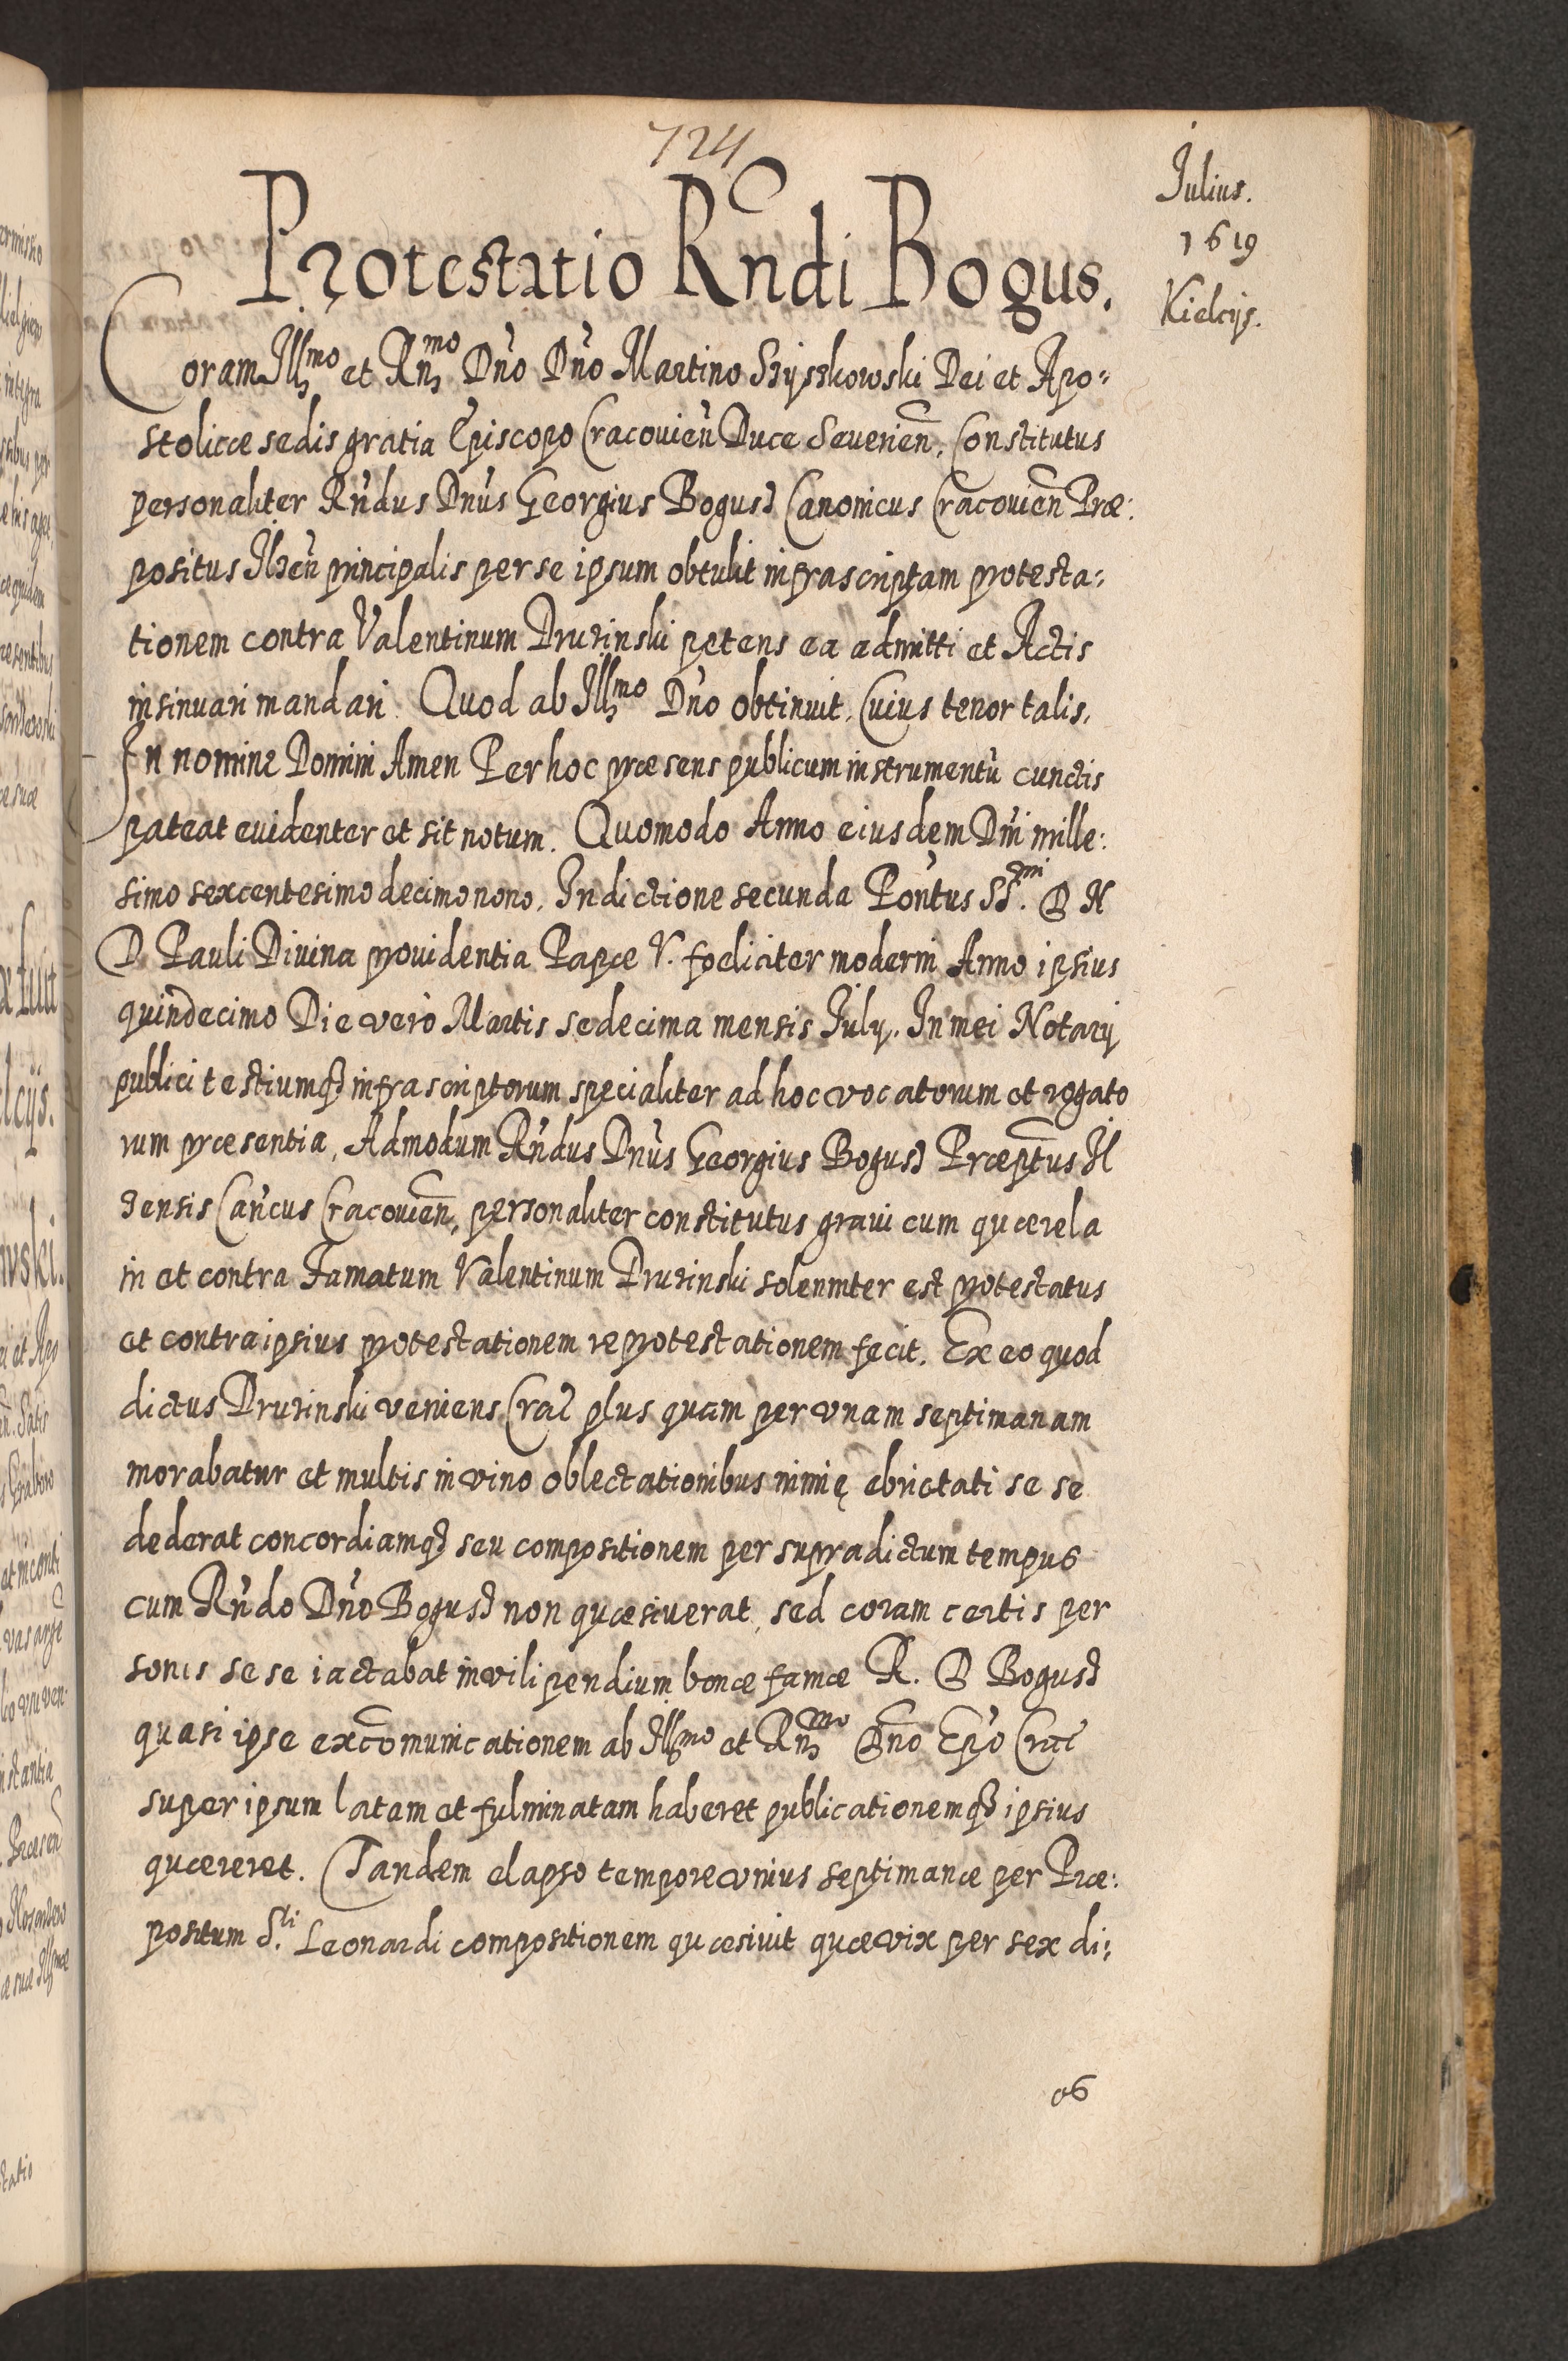 724
Julius.
1619
Kielcijs.
Protestatio Rndi Bogus.
Coram Illmo et Rnmo Dno Dno Martino Szyszkowski Dei et Apo=
stolicæ sedis gratia Episcopo Cracovien Duce Severien. Constitutus
personaliter Rndus Dnus Georgius Bogusz Canonicus Cracovien Præ:
positus Ilzen principalis per se ipsum obtulit infrascriptam protesta=
tionem contra Valentinum Druzinski petens ea admitti et Actis
insinuari mandari. Quod ab Illmo Dno obtinuit. Cuius tenor talis.
In nomine Domini Amen Per hoc præsens publicum instrumentũ cunctis
pateat evidenter et sit notum. Quomodo Anno eiusdem Dni mille:
simo sexcentesimo decimo nono. Indictione secunda Pontus SSmi. D N
D. Pauli Divina providentia Papæ V. fœliciter moderni Anno ipsius
quindecimo Die vero Martis sedecima mensis July. In mei Notarij
publici testiumq3 infrascriptorum specialiter ad hoc vocatorum et rogato
rum præsentia, Admodum Rndus Dnus Georgius Bogusz Præptus Il
zensis Cancus Cracovien, personaliter constitutus gravi cum quærela
in et contra Famatum Valentinum Druzinski solenniter est protestatus
et contra ipsius protestationem reprotestationem fecit. Ex eo quod
dictus Druzinski veniens Crac plus quam per unam septimanam
morabatur et multis in vino oblectationibus nimię ebrietati se se
dederat concordiamq3 seu compositionem per supradictum tempus
cum Rndo Dno Bogusz non quæsiverat, sed coram certis per
sonis se se iactabat in vilipendium bonæ famæ R. D Bogusz
quasi ipse excomunicationem ab Illmo et Rnmo Dno Epo Crac
super ipsum latam et fulminatam haberet publicationemq3 ipsius
quæreret. Tandem elapso tempore unius septimanæ per Præ:
positum S.ti Leonardi compositionem quæsivit quæ vix per sex di:
es